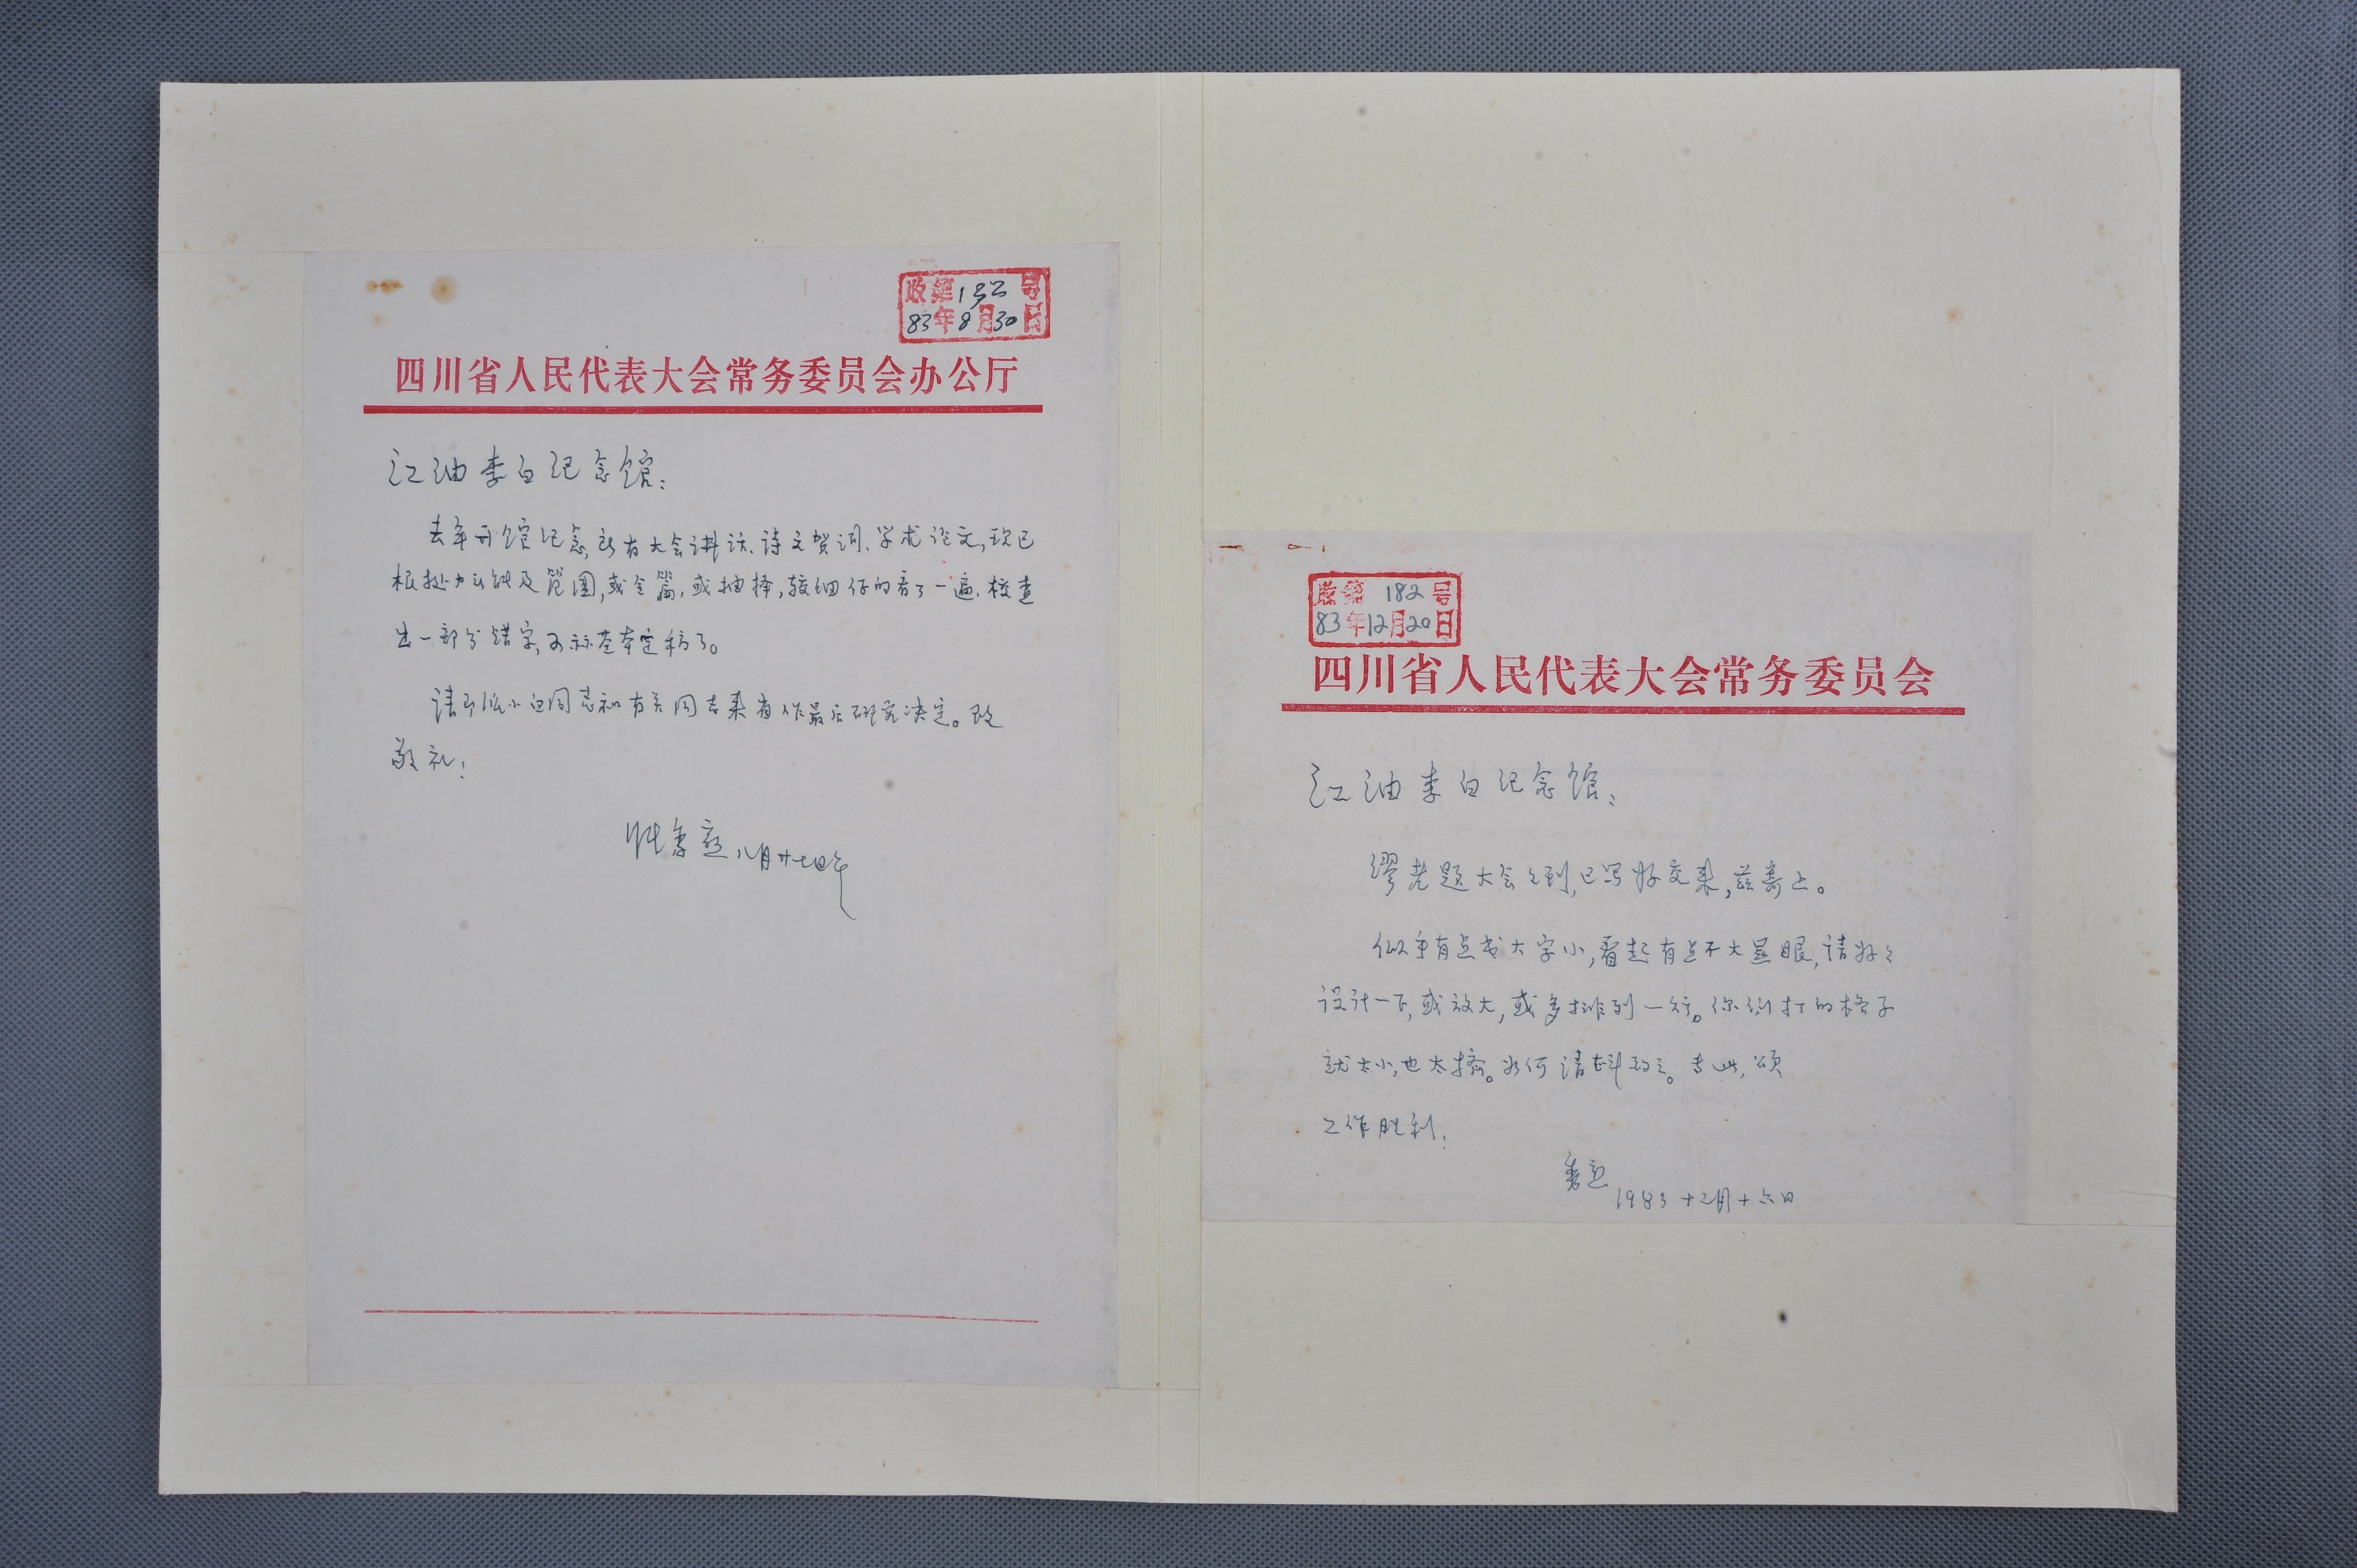 收第132号
83年8月30日
四川省人民代表大会常务委员会办公厅
江油李白纪念馆：
去年开馆纪念，所有大会讲话、诗文贺词、学术论文，现已
根据力所能及范围，或全篇，或抽择，较细仔的看了一遍，校查
出一部分错字，可称基本定稿了。
请即派小白同志和有关同志来省作最后研究决定。致
敬礼！
任秀 八月廿七日午
收第182号
83年12月20日
四川省人民代表大会常务委员会
江油李白纪念馆：
缪老题大会，已写好交来，兹寄上。
似乎有点书大字小，看起有点不大显眼，请好々
设计一下，或放大，或多排列一行。你们打的格子
就太小，也太挤。如何请斟酌之。专此，颂
工作胜利！
1983 十二月十六日